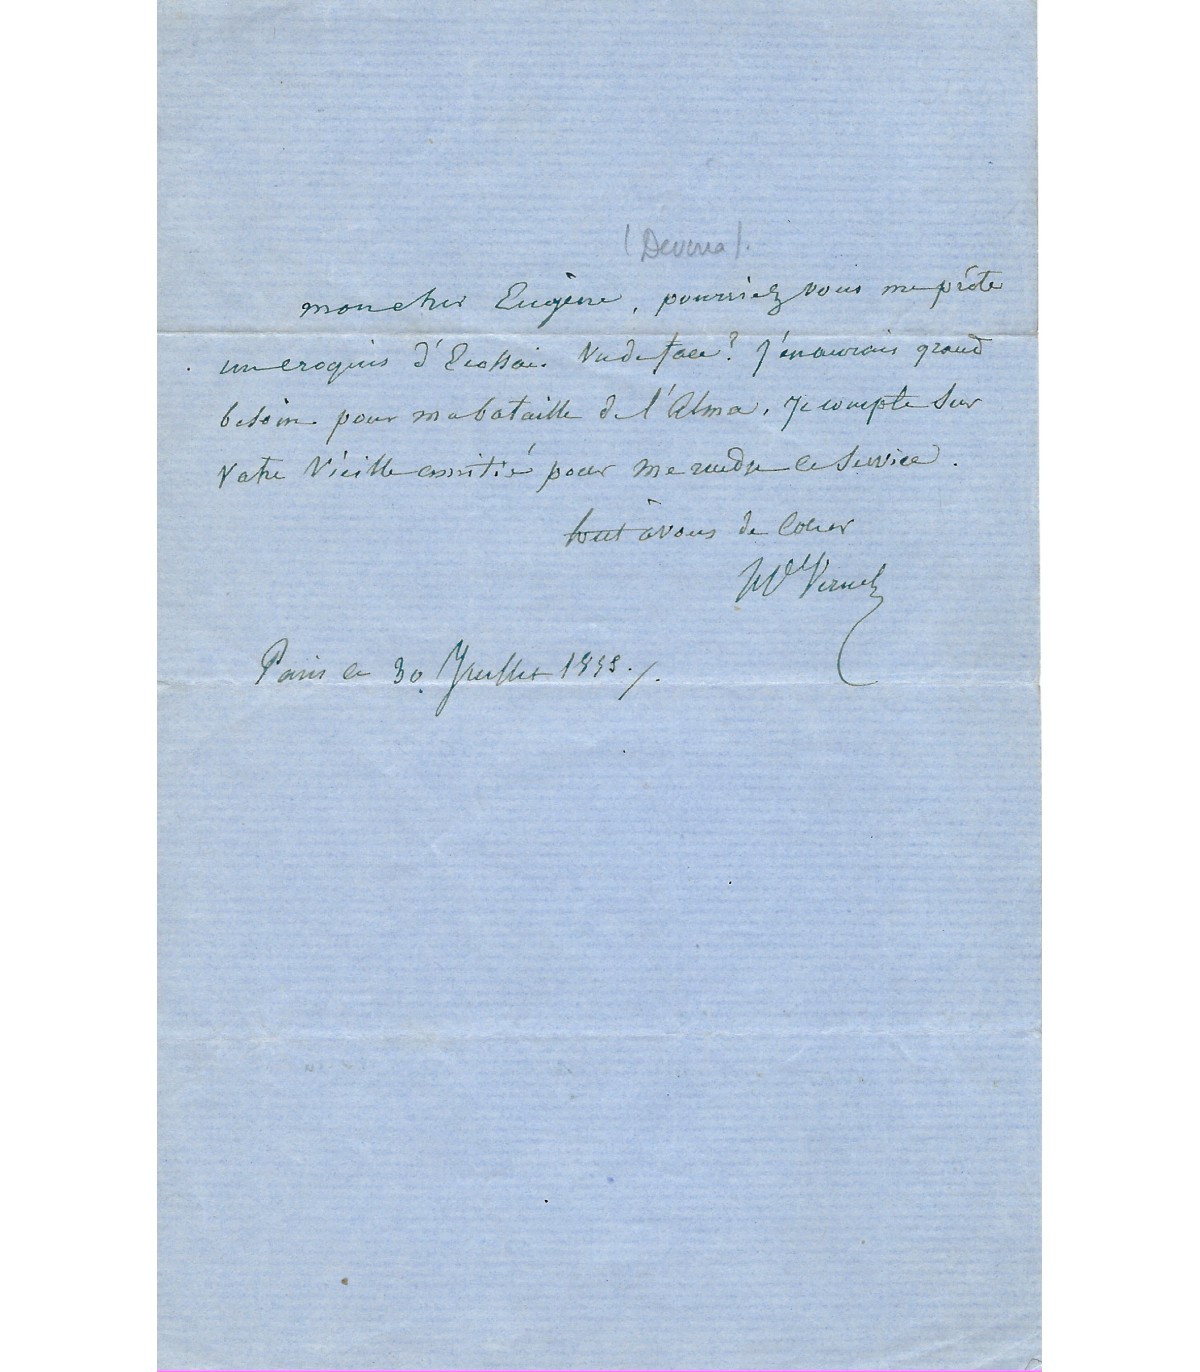 (Deveria).
mon cher Eugène, pourriez vous me prêter
un croquis d'Ecossais vu de face? j'en aurais grand
besoin pour ma bataille de l'Alma. je compte sur
votre vieille amitié pour me rendre ce service.
tout à vous de Coeur
Hce Vernet
Paris ce 30 Juillet 1855.